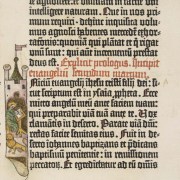 requiri · debent inquisita volu
mus agnosci habentes mercedē exhor=
tacionis: quoniā qui plantat ⁊ qui ri=
gat unum sunt: qui aut incrementum prestat
deus est. Explicit prologus. Incipit
euangeliū secundum marcum.
Initium euangelij ihesu cristi filij dei: si=
cut scriptum est in ysaia ꝓpheta.
Ecce mitto angelū meū ante faciem tuam:
qui preparabit viam tuam ante te. Vox
clamantis in deserto. Parate viā do=
mini: rectas facite semitas eius. Fuit in
deserto iohannes baptizans ⁊ p̄dicans
baptismū penitentie: in remissionem
peccatorum. Et egrediebatur ad eum